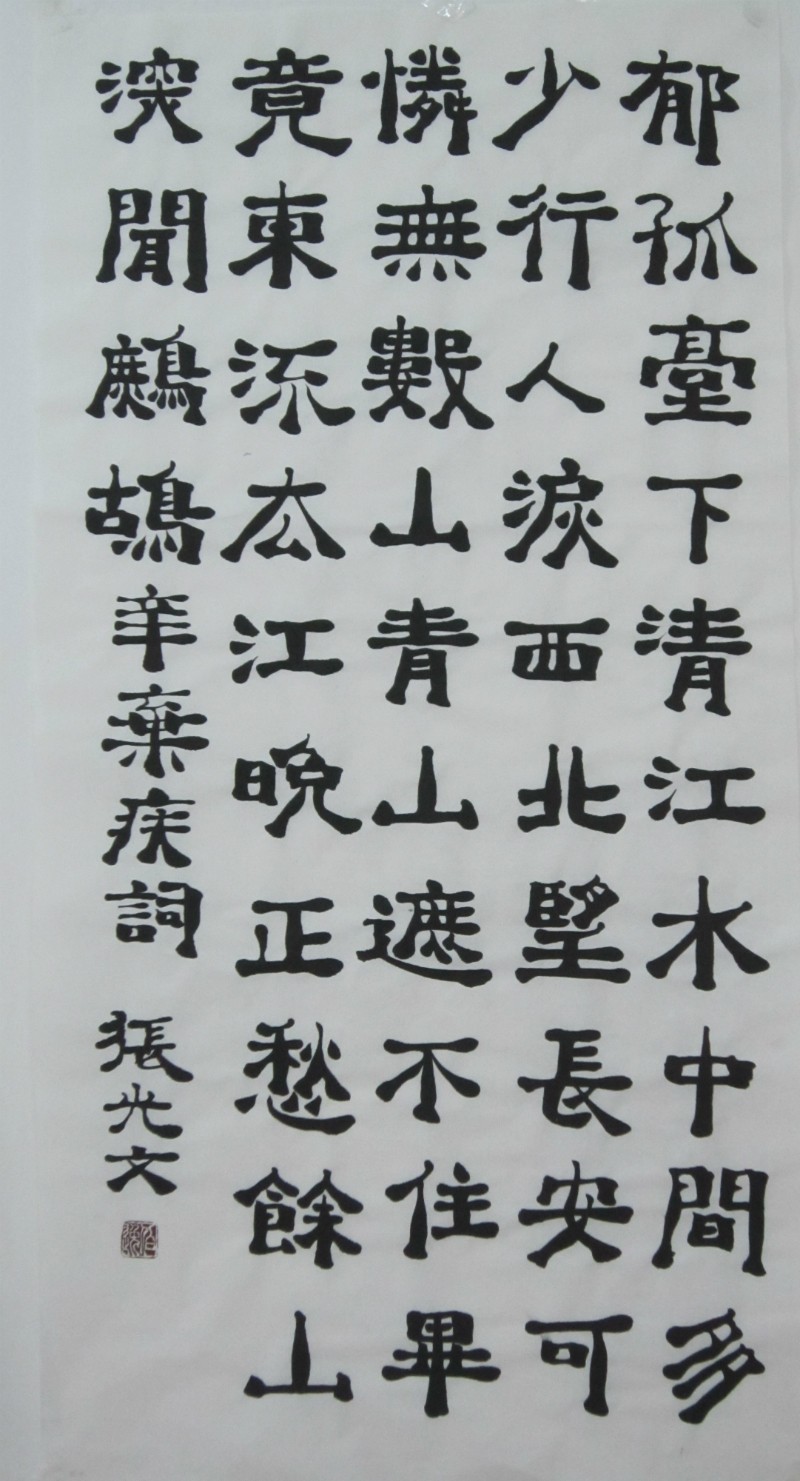 郁孤臺下清江水中間多
少行人淚西北望長安可
憐無數山青山遮不住畢
竟東流去江晚正愁餘山
深聞鷓鴣 辛棄疾詞 張光文